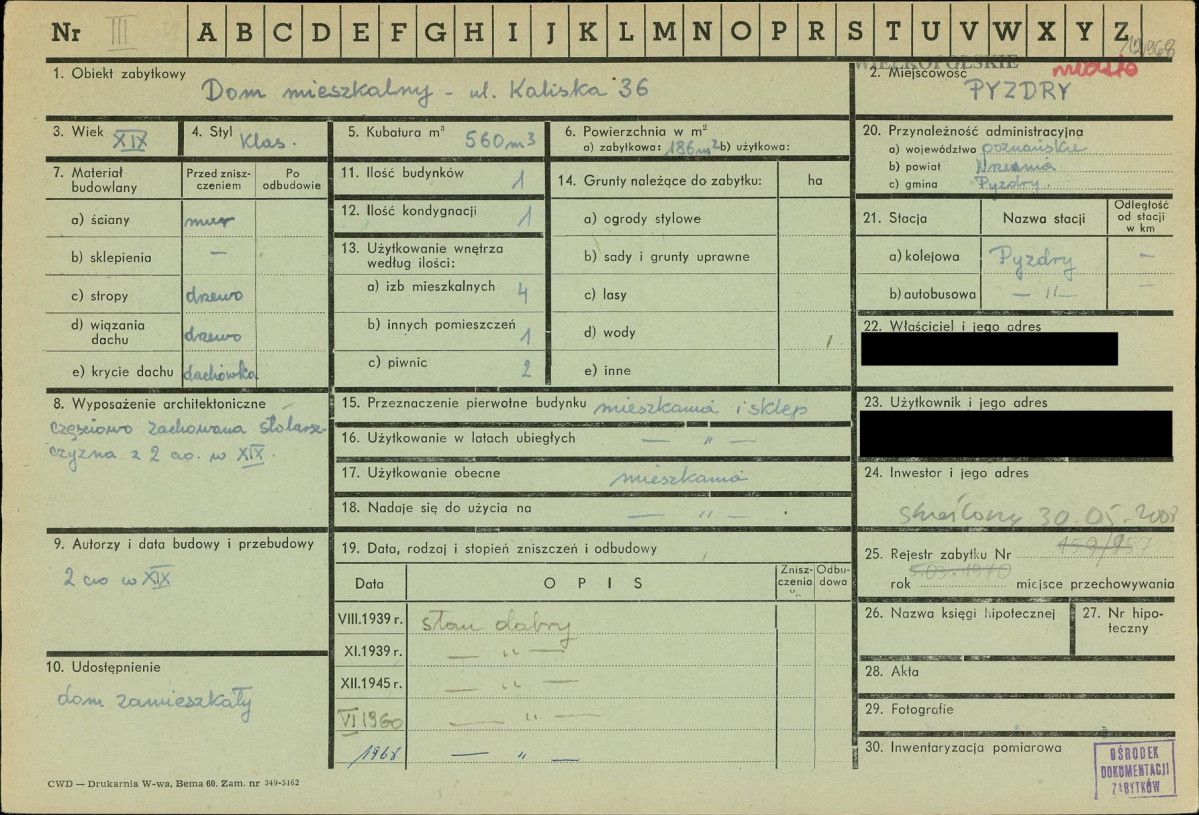 Nr III A B C D E F G H I J K L M N O P R S T U V W X Y Z
WIELKOPOLSKIE
1. Obiekt zabytkowy
Dom mieszkalny - ul. Kaliska 36
2. Miejscowość miasto
PYZDRY
3. Wiek XIX
4. Styl Klas.
5. Kubatura m³ 560 m3
6. Powierzchnia w m²
a) zabytkowa: 186 m2 b) użytkowa:
7. Materiał budowlany
Przed zniszczeniem
Po odbudowie
a) ściany mur
b) sklepienia —
c) stropy drzewo
d) wiązania dachu drzewo
e) krycie dachu dachówka
8. Wyposażenie architektoniczne
częściowo zachowana stolarsz-
czyzna z 2 ćw. w XIX.
9. Autorzy i data budowy i przebudowy
2 ćw w XIX
10. Udostępnienie
dom zamieszkały
11. Ilość budynków 1
12. Ilość kondygnacji 1
13. Użytkowanie wnętrza
według ilości:
a) izb mieszkalnych 4
b) innych pomieszczeń 1
c) piwnic 2
14. Grunty należące do zabytku: ha
a) ogrody stylowe
b) sady i grunty uprawne
c) lasy
d) wody
e) inne
15. Przeznaczenie pierwotne budynku mieszkania i sklep
16. Użytkowanie w latach ubiegłych — " —
17. Użytkowanie obecne mieszkania
18. Nadaje się do użycia na — " —
19. Data, rodzaj i stopień zniszczeń i odbudowy
Data O P I S Zniszczenia % Odbudowa
VIII.1939 r. stan dobry
XI.1939 r. — " —
XII.1945 r. — " —
VI 1960 — " —
1968 — " —
20. Przynależność administracyjna
a) województwo poznańskie
b) powiat Września
c) gmina Pyzdry.
21. Stacja Nazwa stacji
Odległość od stacji w km
a) kolejowa Pyzdry —
b) autobusowa — " — —
22. Właściciel i jego adres
23. Użytkownik i jego adres
24. Inwestor i jego adres
skreślony 30.05.2008
25. Rejestr zabytku Nr
rok 5.03.1970 miejsce przechowywania
26. Nazwa księgi hipotecznej
27. Nr hipoteczny
28. Akta
29. Fotografie
30. Inwentaryzacja pomiarowa
OŚRODEK
DOKUMENTACJI
ZABYTKÓW
CWD — Drukarnia W-wa, Bema 60. Zam. nr 349-5162